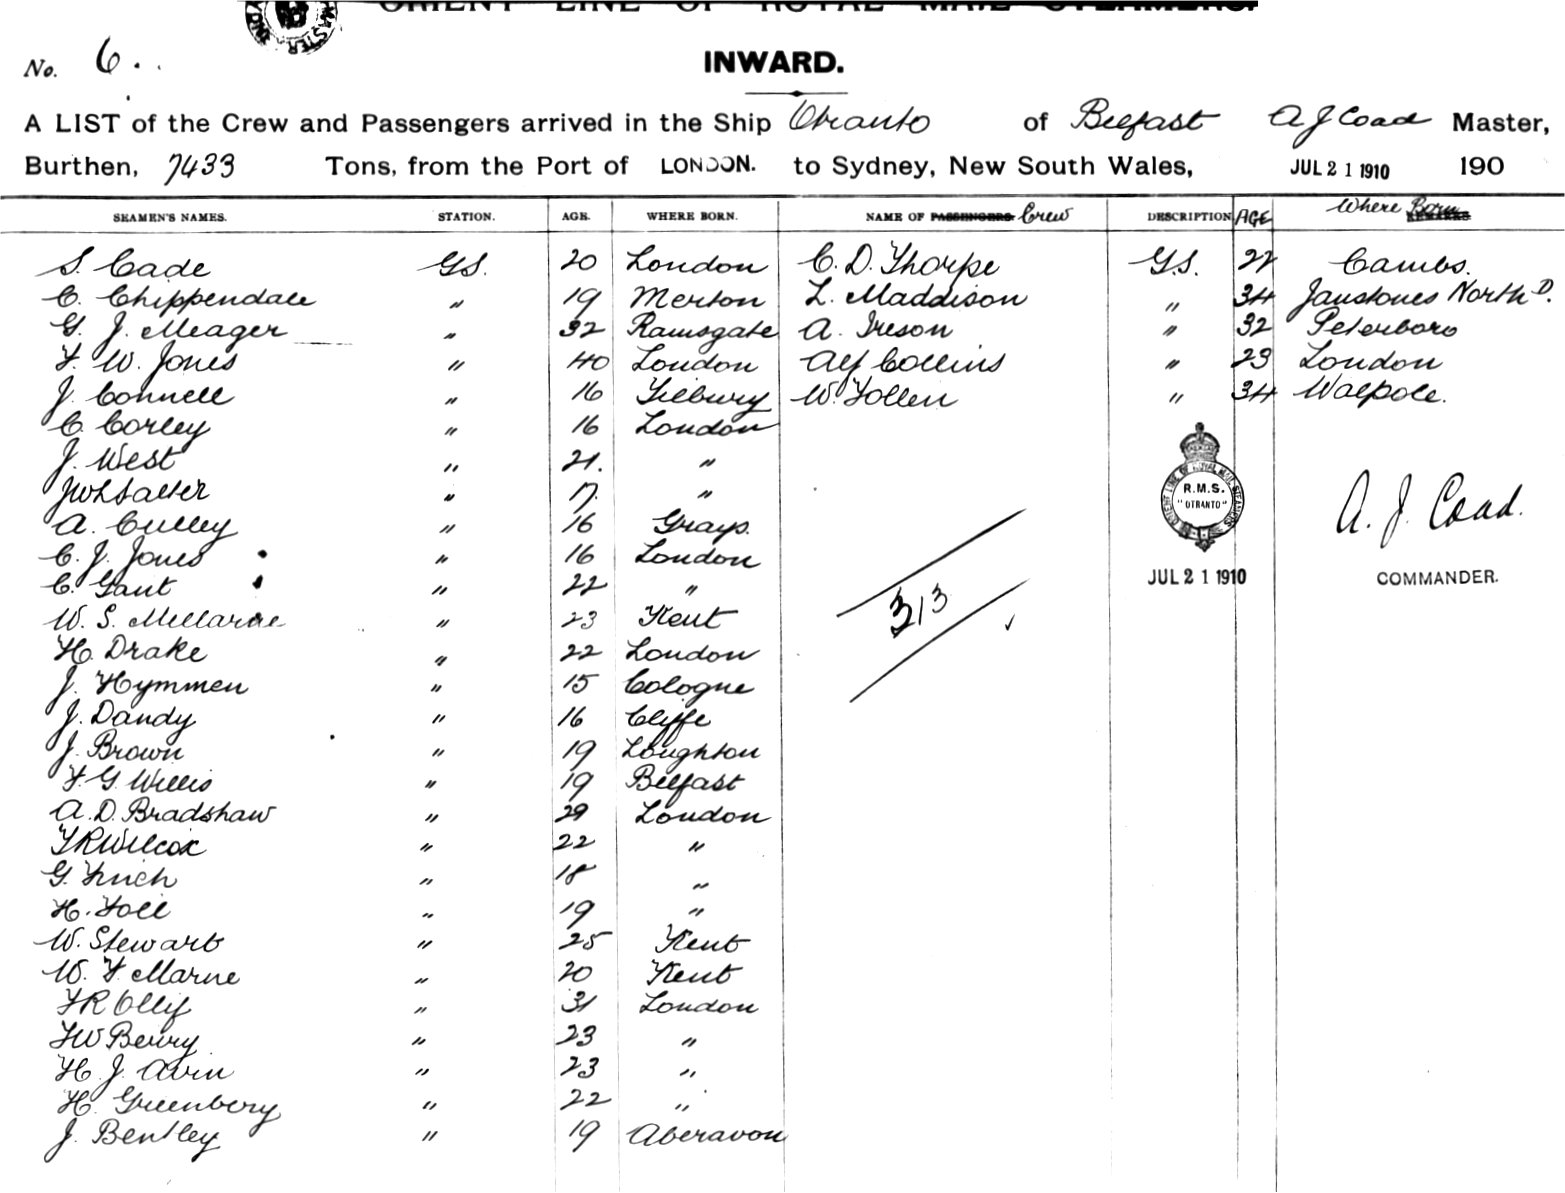 ORIENT LINE OF ROYAL MAIL STEAMERS.
No. 6.
INWARD.
A LIST of the Crew and Passengers arrived in the Ship Otranto of Belfast A J Coad Master,
Burthen, 7433 Tons, from the Port of LONDON. to Sydney, New South Wales, JUL 21 1910 190
SEAMEN'S NAMES. STATION. AGE. WHERE BORN. NAME OF PASSENGERS Crew DESCRIPTION AGE Where Born
S. Cade G.S. 20 London C. D. Thorpe G.S. 22 Cambs.
C. Chippendale " 19 Merton L. Maddison " 34 North D.
G. J. Meager " 32 Ramsgate A. Ireson " 32 Peterboro
F. W. Jones " 40 London Alf Collins " 23 London
J. Connell " 16 Tilbury W. Follen " 34 Walpole.
C. Corley " 16 London
J. West " 21. "
J W L Salter " 17. "
A. Culley " 16 Grays.
C. J. Jones " 16 London
C. Gant " 22 "
W. S. " 23 Kent
H. Drake " 22 London
J. Hymmen " 15 Cologne
J. Dandy " 16 Cliffe
J. Brown " 19 Loughton
F. G. Willis " 19 Belfast
A. D. Bradshaw " 29 London
F R Wilcox " 22 "
G. Finch " 18 "
H. Foll " 19 "
W. Stewart " 25 Kent
W. F. Marne " 20 Kent
F R Olly " 31 London
F W Berry " 23 "
H. J. Avin " 23 "
H. Greenbery " 22 "
J. Bentley " 19 Aberavon
ORIENT LINE OF ROYAL MAIL STEAMERS
R.M.S.
"OTRANTO"
JUL 21 1910
A. J. Coad.
COMMANDER.
313